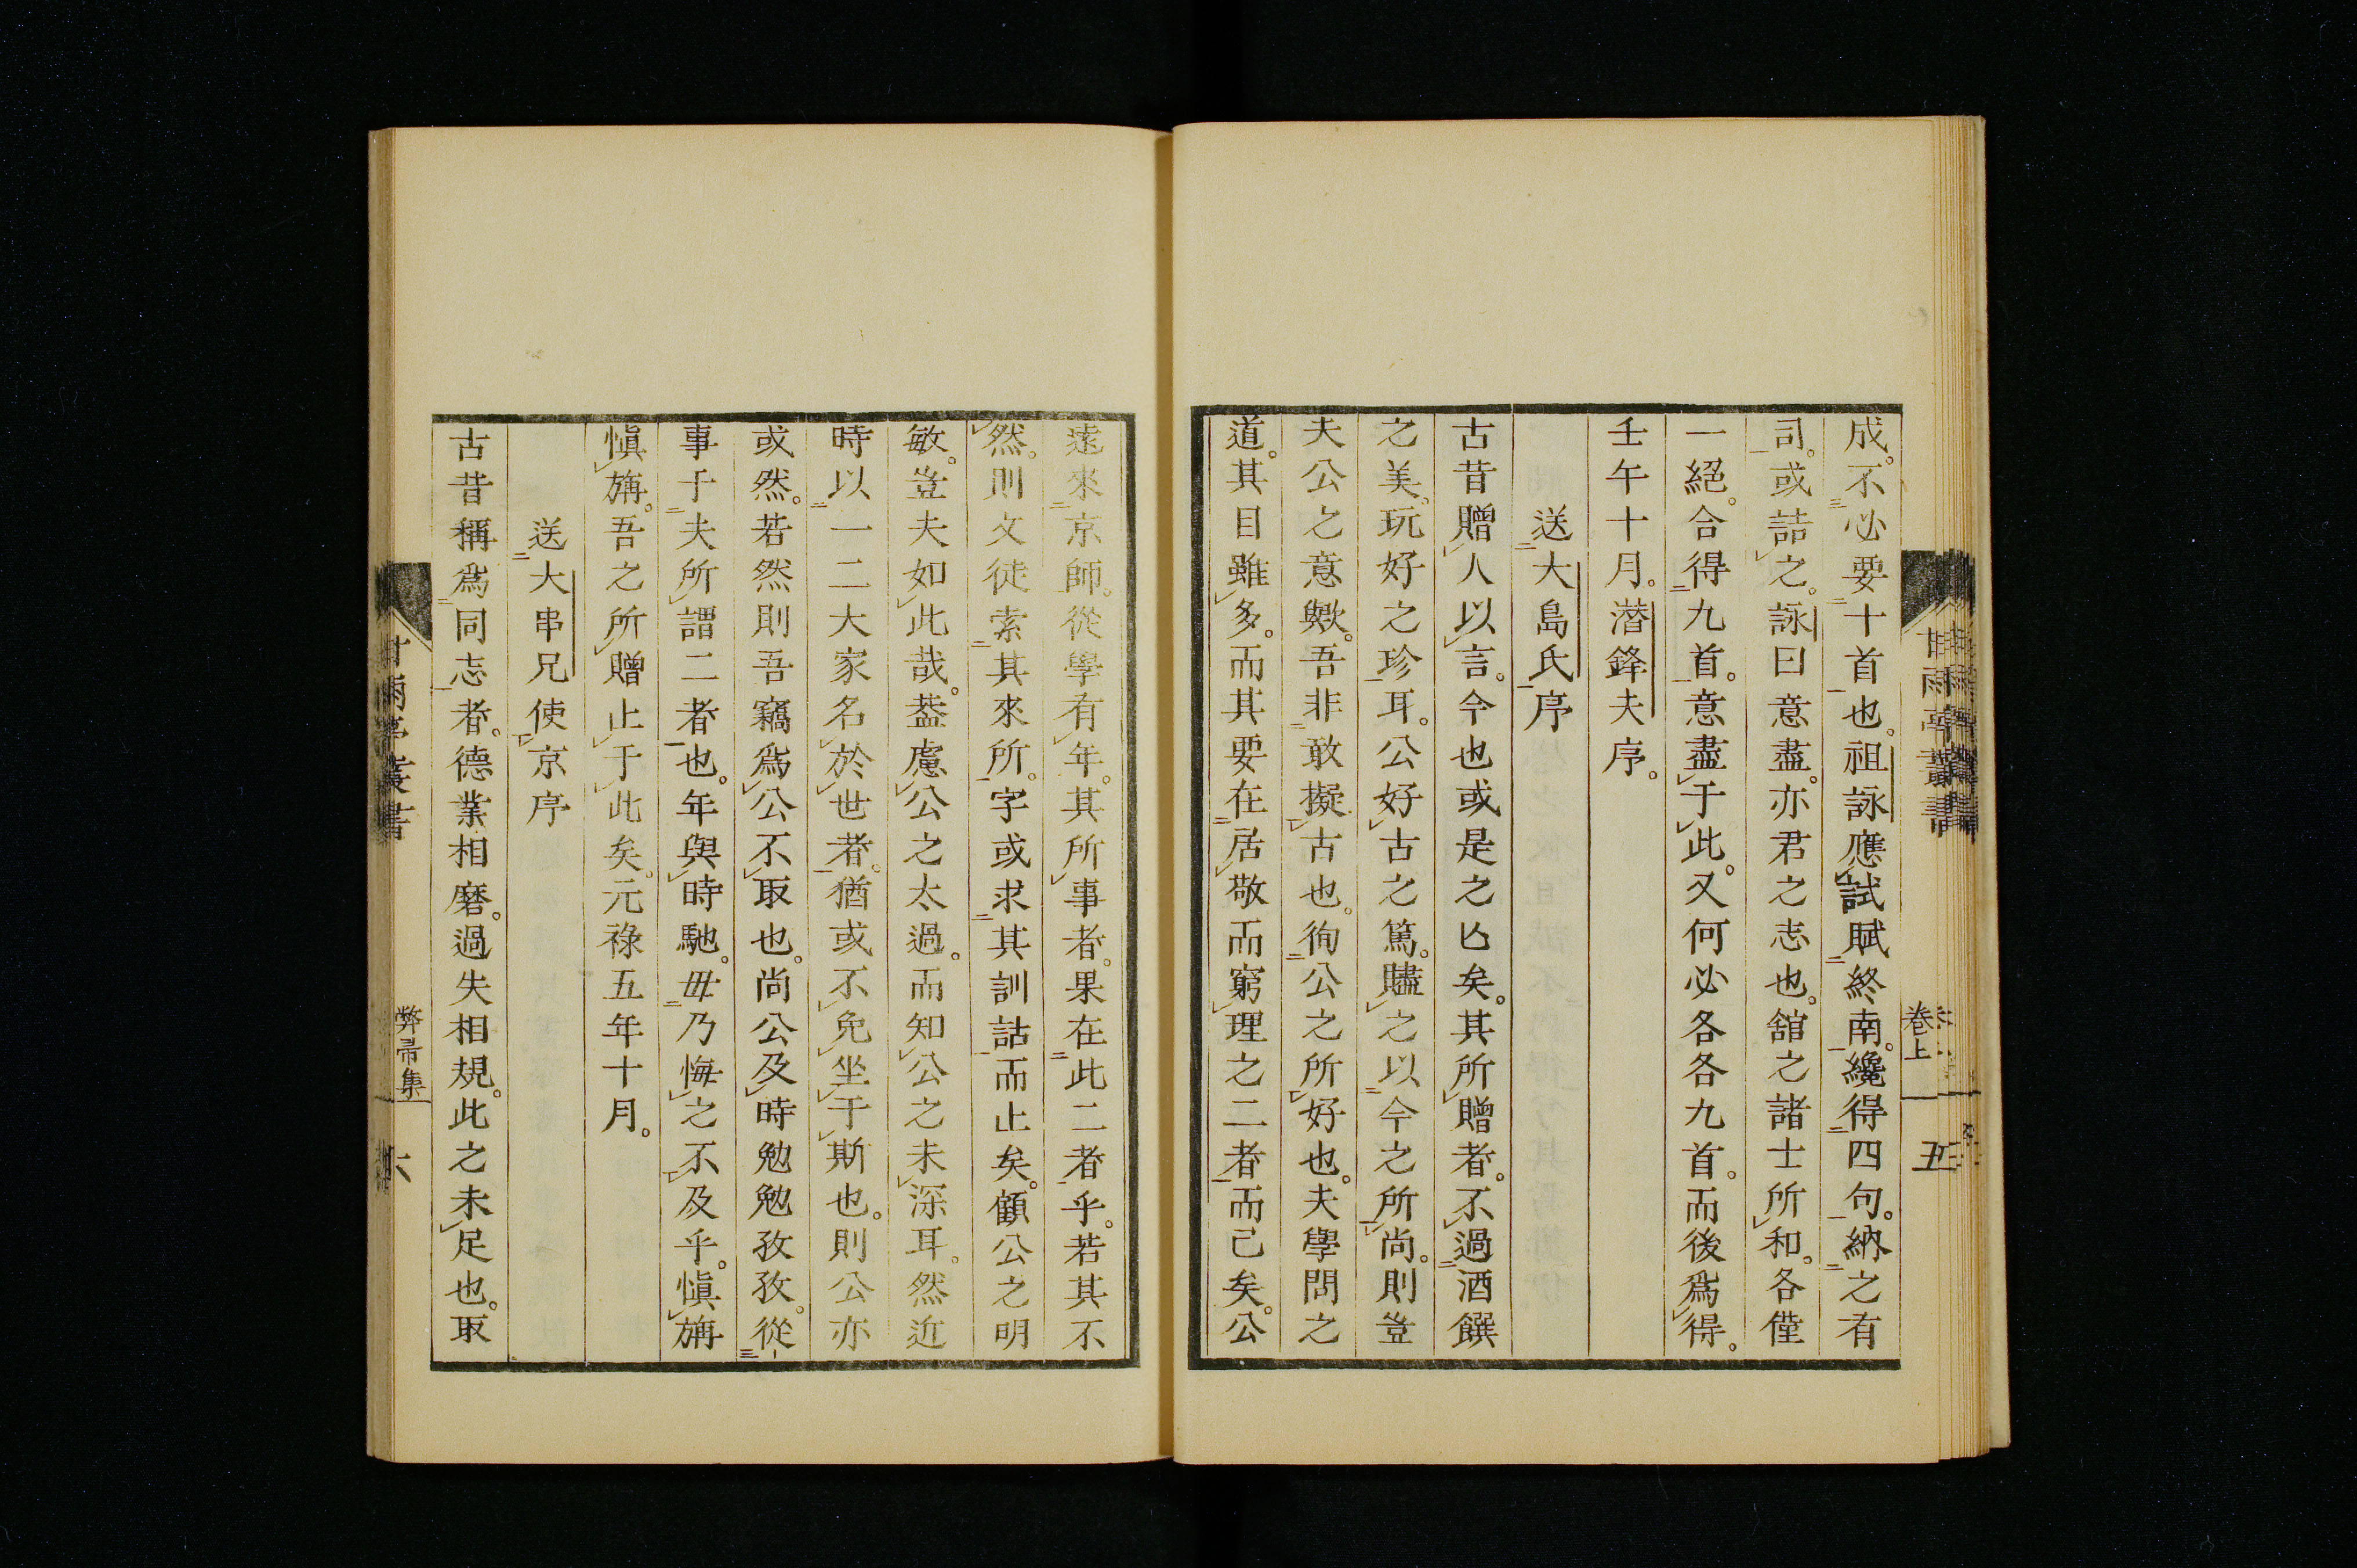 成。不必要十首也。祖詠應試賦終南。纔得四句。納之有
司。或詰之。詠曰意盡。亦君之志也。舘之諸士所和。各僅
一絕。合得九首。意盡于此。又何必各各九首。而後爲得。
壬午十月。潛鋒夫序。
送大島氏序
古昔贈人以言。今也或是之亾矣。其所贈者。不過酒饌
之美。玩好之珍耳。公好古之篤。贐之以今之所尚。則豈
夫公之意歟。吾非敢擬古也。徇公之所好也。夫學問之
道。其目雖多。而其要在居敬而窮理之二者而已矣。公
甘雨亭叢書
卷上
五
遠來京師。從學有年。其所事者。果在此二者乎。若其不
然。則文徒索其來所。字或求其訓詁而止矣。顧公之明
敏。豈夫如此哉。葢慮公之太過。而知公之未深耳。然近
時以一二大家名於世者。猶或不免坐于斯也。則公亦
或然。若然則吾竊爲公不取也。尚公及時勉勉孜孜。從
事于夫所謂二者也。年與時馳。毋乃悔之不及乎。愼旃
愼旃。吾之所贈止于此矣。元祿五年十月。
送大串兄使京序
古昔稱爲同志者。德業相磨。過失相規。此之未足也。取
甘雨亭叢書
弊帚集
六